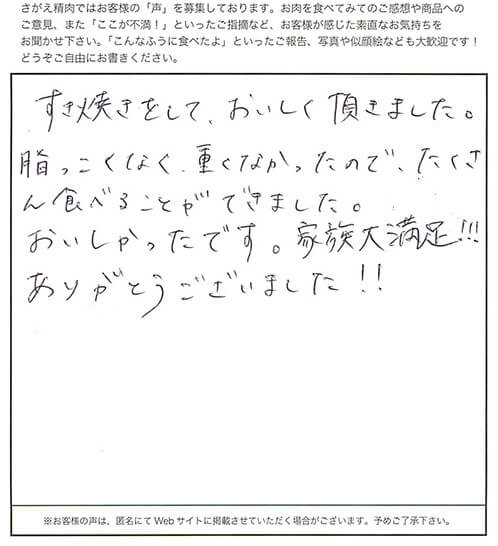 さがえ精肉ではお客様の「声」を募集しております。お肉を食べてみてのご感想や商品への
ご意見、また「ここが不満！」といったご指摘など、お客様が感じた素直なお気持ちを
お聞かせ下さい。「こんなふうに食べたよ」といったご報告、写真や似顔絵なども大歓迎です！
どうぞご自由にお書きください。
すき焼きをして、おいしく頂きました。
脂っこくなく、重くなかったので、たくさ
ん食べることができました。
おいしかったです。家族大満足!!!
ありがとうございました!!
※お客様の声は、匿名にて Web サイトに掲載させていただく場合がございます。予めご了承下さい。